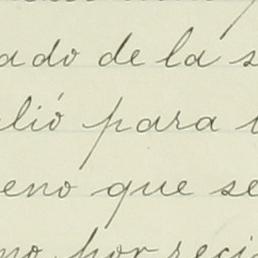 ado de la s
lió para
eno que se
mo por reci